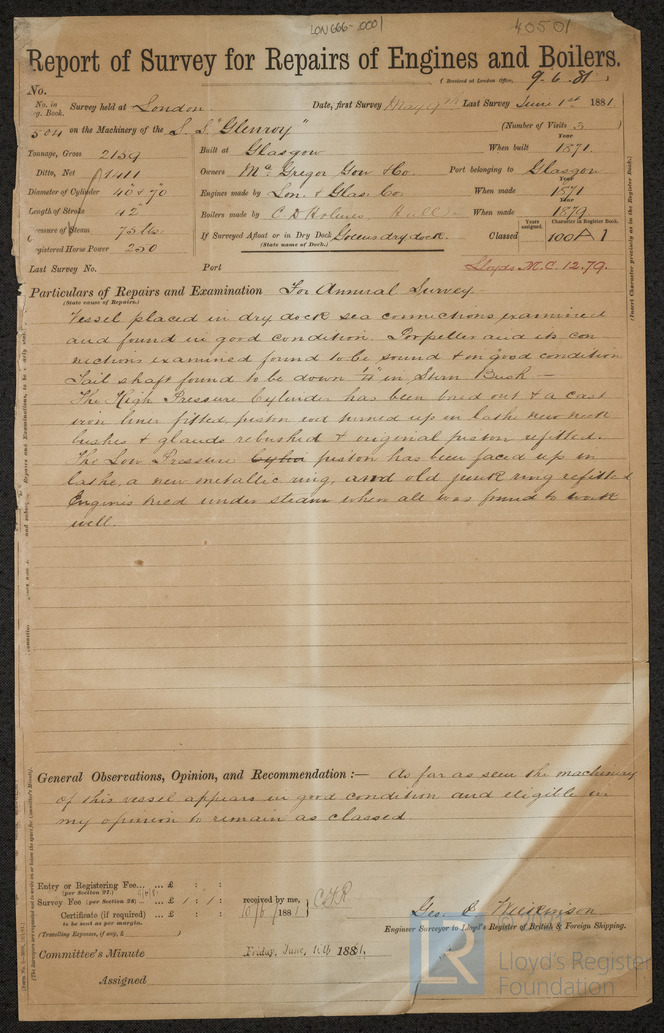 LON666-0001
40501
Report of Survey for Repairs of Engines and Boilers.
(Received at London Office, 9-6-81)
No.
No. in Reg. Book. Survey held at London Date, first Survey May Last Survey June 1st 1881
504 on the Machinery of the S.S. "Glenroy" (Number of Visits 3)
Tonnage, Gross 2139 Built at Glasgow When built Year 1871
Ditto, Net 1411 Owners Mc Gregor Gow & Co. Port belonging to Glasgow
Diameter of Cylinder 40" & 70 Engines made by Lon. & Glas. Co When made Year 1871
Length of Stroke 42 Boilers made by C D Holmes Hull When made Year 1879
Pressure of Steam 75 lbs If Surveyed Afloat or in Dry Dock Greens dry dock. Classed Years assigned. Character in Register Book. 100 A 1
(State name of Dock.)
Registered Horse Power 250
Last Survey No. Port Lloyds M.C. 12.79.
Particulars of Repairs and Examination For Annual Survey
(State cause of Repairs.)
Vessel placed in dry dock sea connections examined
and found in good condition. Propeller and its con
nections examined found to be sound & in good condition
Tail shaft found to be down 1/4" in Stern Bush —
The High Pressure Cylinder has been bored out & a cast
iron liner fitted piston rod turned up in lathe new neck
bushes & glands rebushed & original piston refitted.
The Low Pressure piston has been faced up in
lathe, a new metallic ring, and old junk ring refitted
Engines tried under steam when all was found to work
well.
General Observations, Opinion, and Recommendation :— As far as seen the machinery
of this vessel appears in good condition and eligible in
my opinion to remain as classed
Entry or Registering Fee... ... £ : :
(per Section 27.)
Survey Fee (per Section 28) ... ... £ 1 : 1 : received by me, CHR
Certificate (if required) ... £ : : 10/6/1881
to be sent as per margin.
(Travelling Expenses, if any, £ )
Geo. Wilkinson
Engineer Surveyor to Lloyd's Register of British & Foreign Shipping.
Committee's Minute Friday, June, 10th 1881.
Assigned
LR
Lloyd's Register
Foundation
(Insert Character precisely as in the Register Book.)